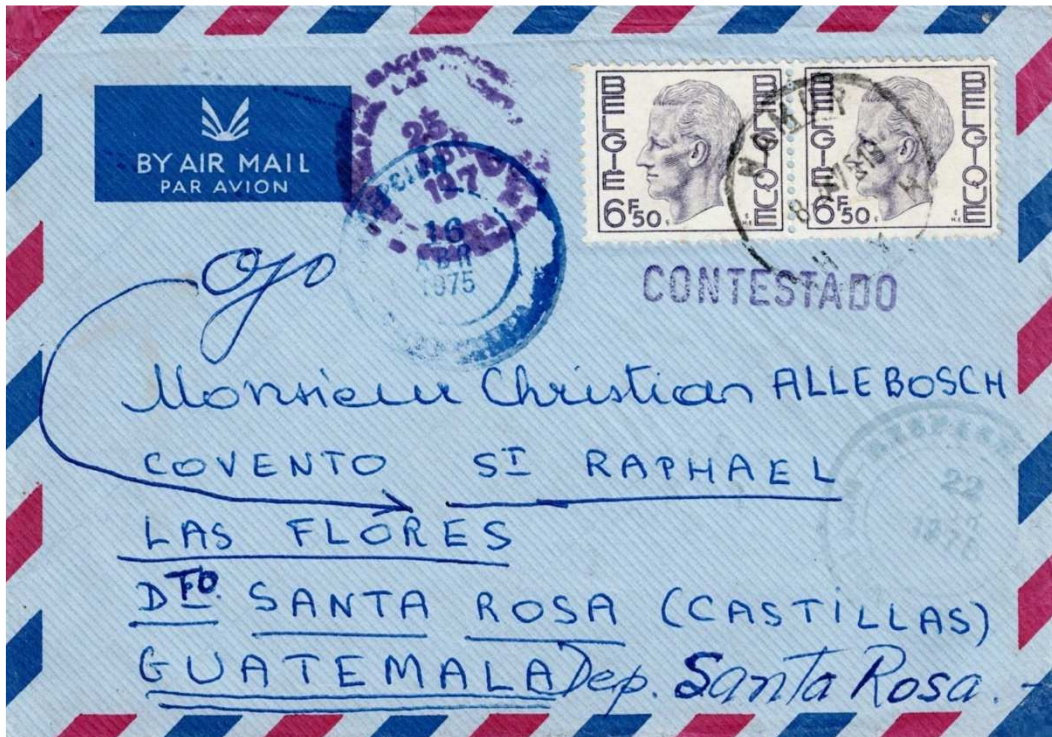 BY AIR MAIL
PAR AVION
25
197
16
ABR
1975
BELGIE BELGIQUE
6F50
BELGIE BELGIQUE
6F50
NAMUR
CONTESTADO
Ojo
Monsieur Christian ALLEBOSCH
COVENTO ST RAPHAEL
LAS FLORES
DTO. SANTA ROSA (CASTILLAS)
GUATEMALA Dep. Santa Rosa.
22